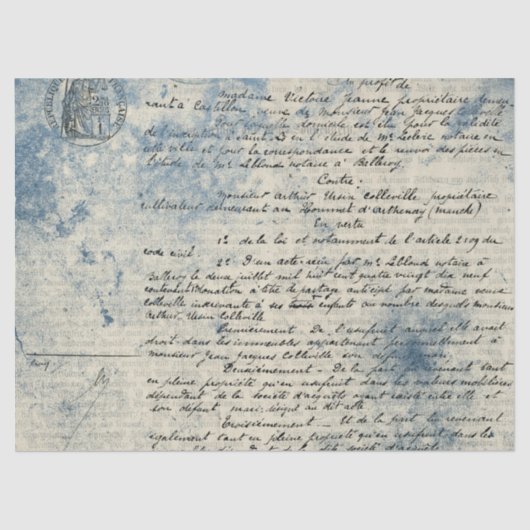 RÉPUBLIQUE FRANÇAISE
Au profit de
Madame Victoire Jeanne propriétaire demeu-
rant à Castillon, veuve de Monsieur Jean Jacques
Pour le domicile est élu pour la validité
de l'inscription à Saint en l'étude de Me Leclerc notaire en
cette ville et pour la correspondance et le renvoi des pièces en
l'étude de Me Leblond notaire à Balleroy.
Contre
Monsieur Arthur Ursin Colleville propriétaire
cultivateur demeurant au Hommet d'Arthenay (Manche)
En vertu
1º de la loi et notamment de l'article 2109 du
code civil.
2º D'un acte reçu par Me Leblond notaire à
Balleroy le deux juillet mil huit cent quatre vingt dix neuf
contenant Donation à titre de partage anticipé par madame veuve
Colleville à ses enfants au nombre desquels monsieur
Arthur Ursin Colleville
Premièrement. De l'usufruit auquel elle avait
droit dans les immeubles appartenant personnellement à
monsieur Jean Jacques Colleville son défunt mari.
Deuxièmement. De la part revenant tant
en pleine propriété qu'en usufruit dans les valeurs mobilières
dépendant de la société d'acquêts ayant existé entre elle et
son défunt mari audit acte
Troisièmement. Et de la part lui revenant
également tant en pleine propriété qu'en usufruit dans les
de la dite société d'acquêts